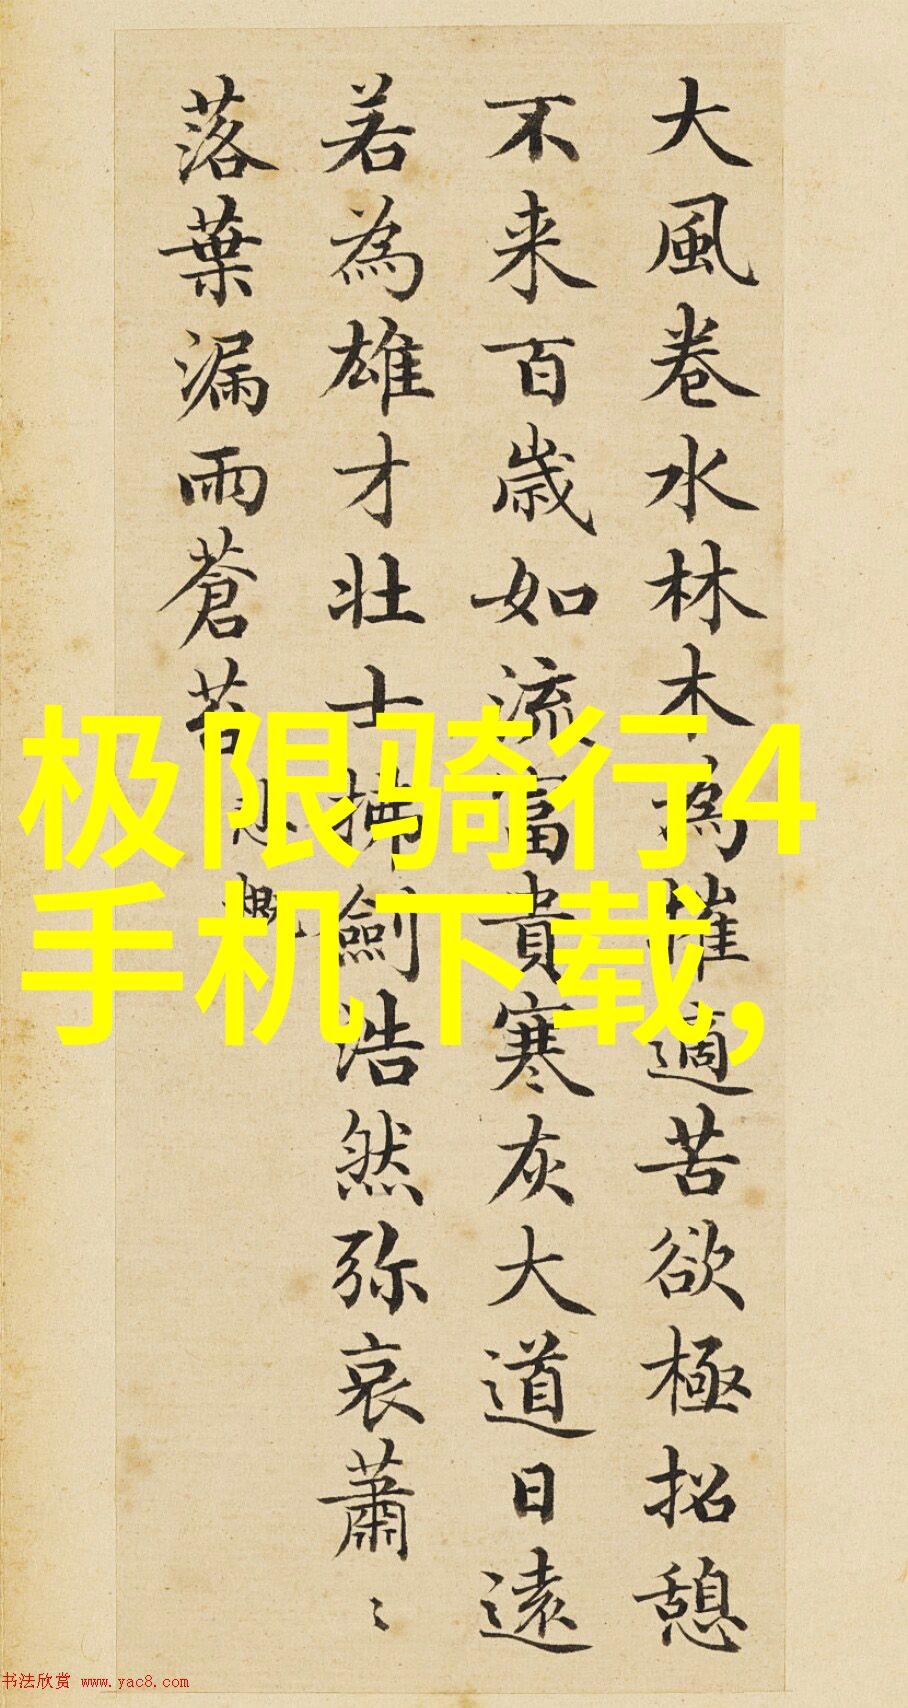 大風卷水林木為摧適苦欲極招憩
不来百歳如流富貴寒灰大道日遠
若為雄才壮士拂劍浩然弥哀蕭〻
落葉漏雨蒼苔
悲概
极限骑行4
手机下载,
书法欣赏 www.yac8.com